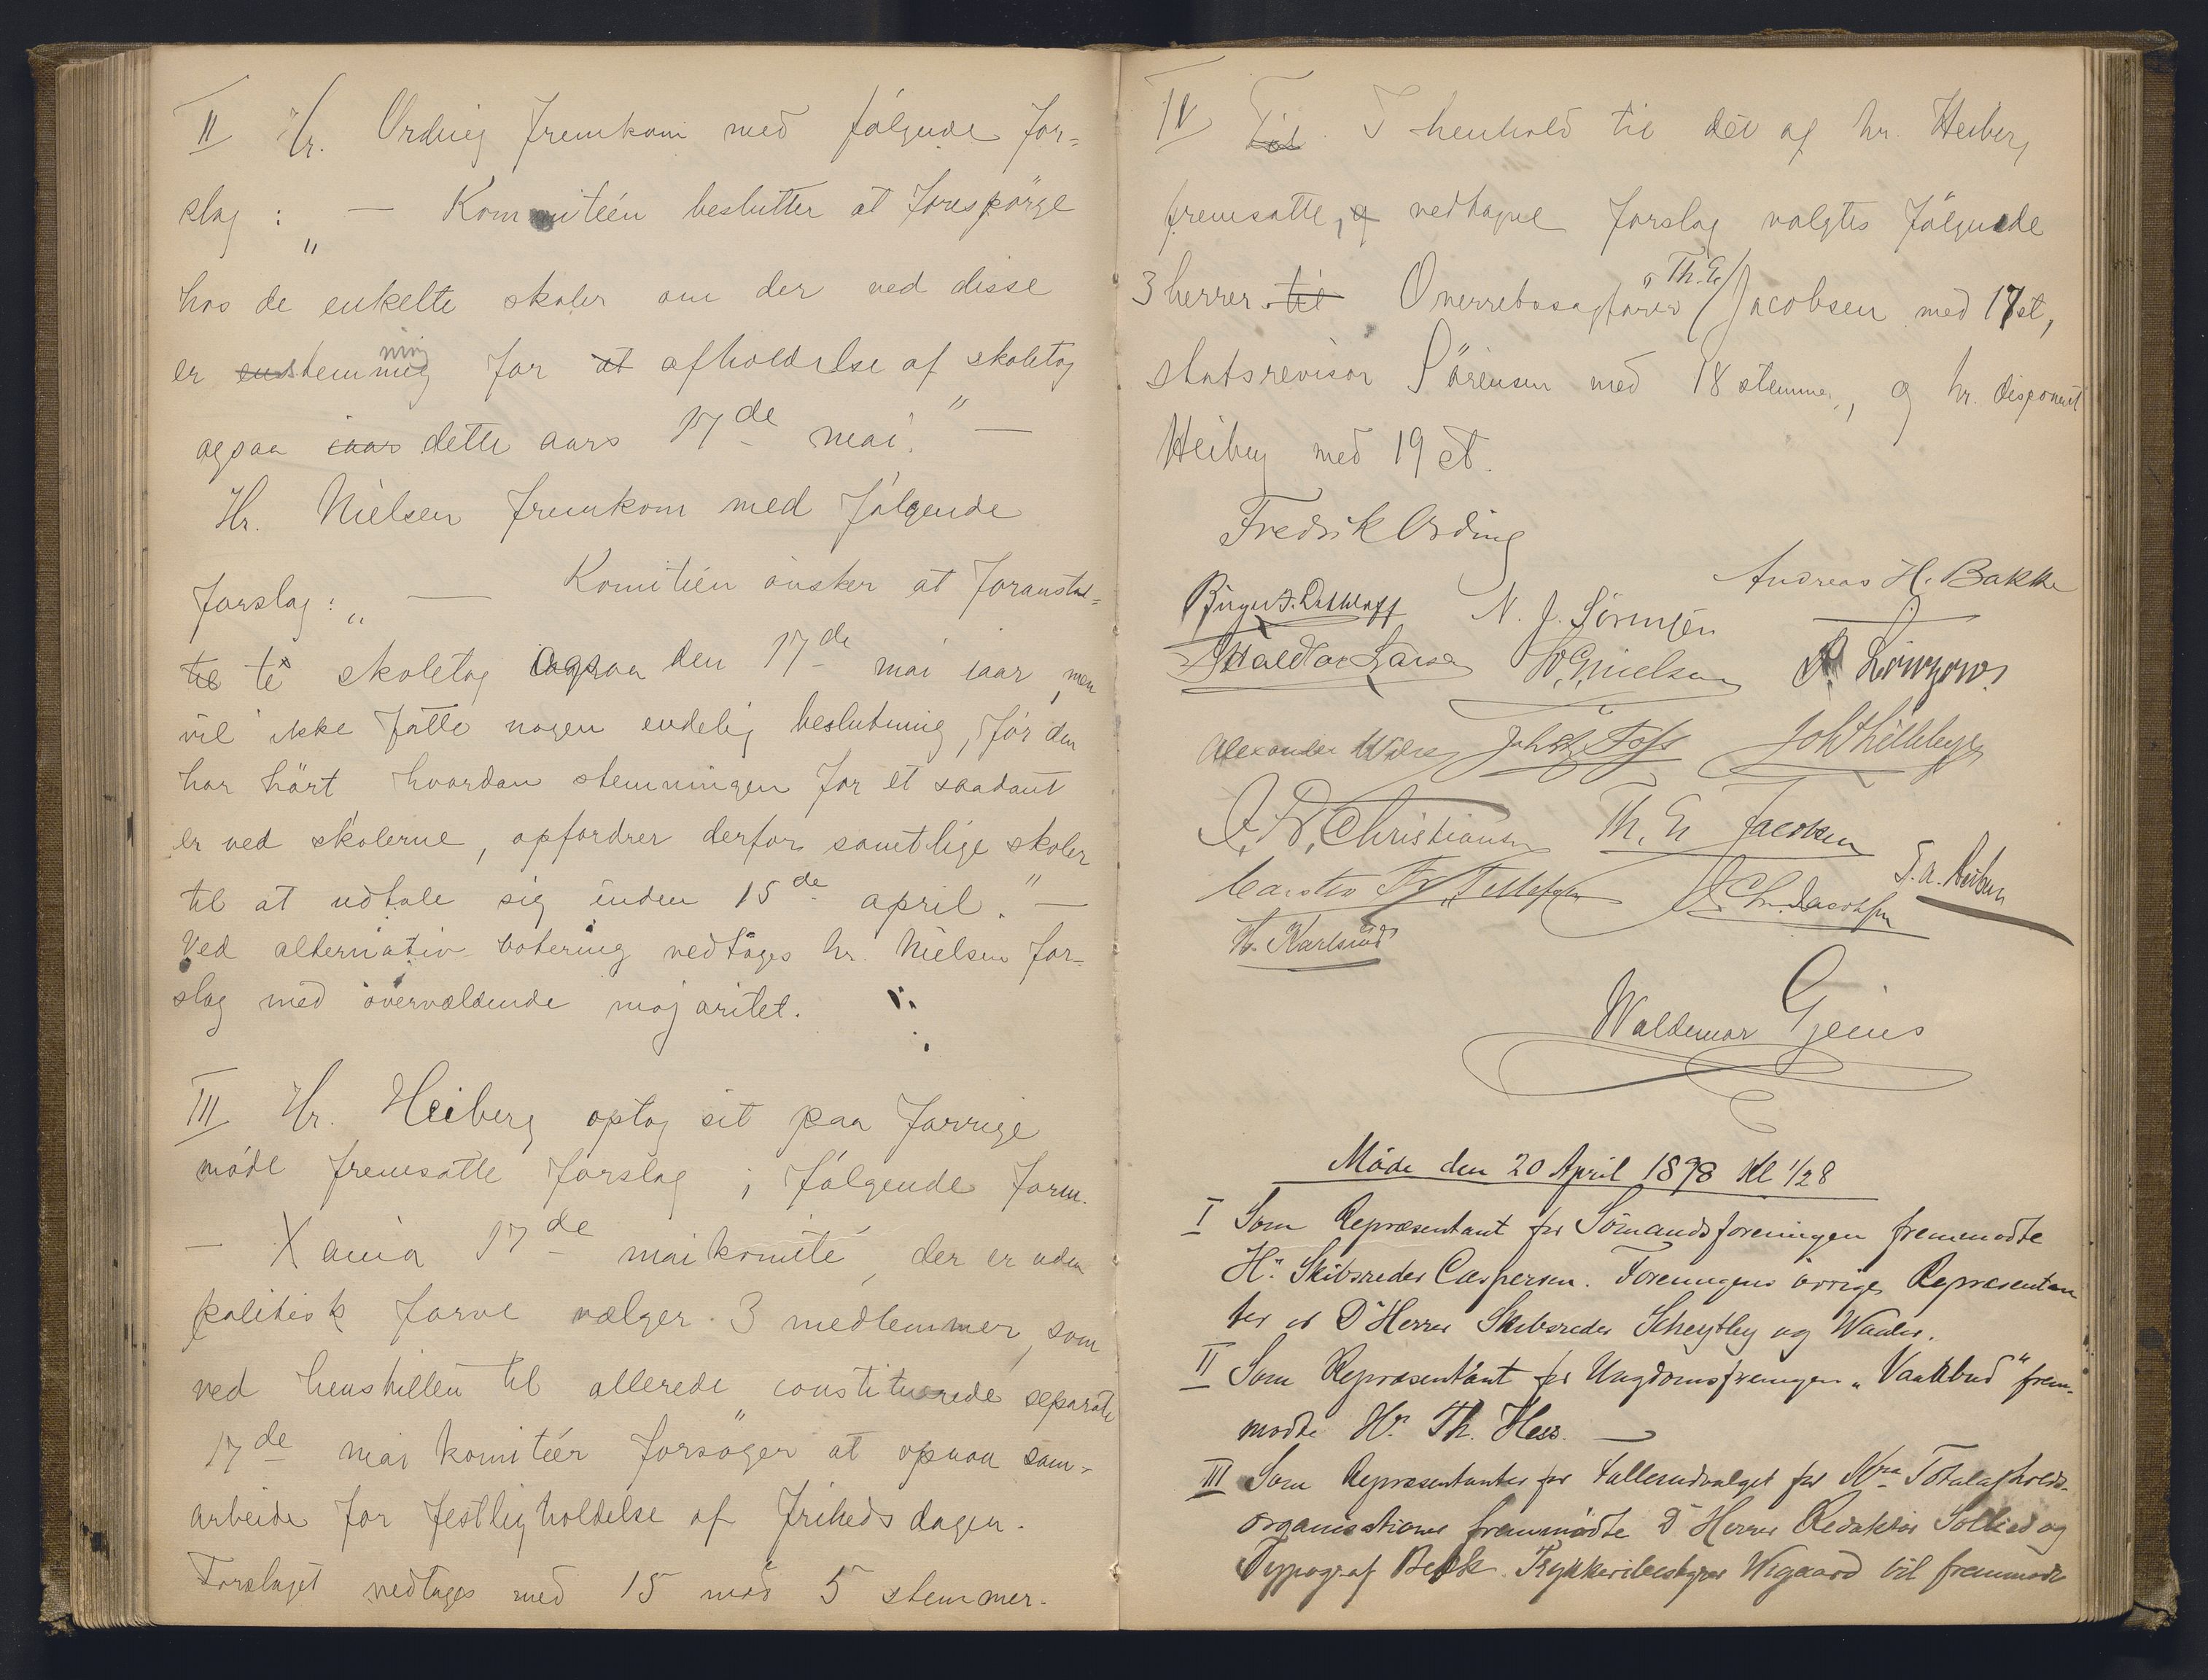 II Hr. Ording fremkom med følgende for-
slag : „ — Kommiteén beslutter at forespörge
hos de enkelte skoler om der ved disse
er stemning for afholdelse af skoletog
ogsaa iaar dette aars 17de mai." —
Hr. Nielsen fremkom med følgende
forslag: „ — Komitéen önsker at foranstal-
te skoletog ogsaa den 17de mai iaar, men
vil ikke fatte nogen endelig beslutning, för den
har hört hvordan stemningen for et saadant
er ved skolerne, opfordrer derfor samtlige skoler
til at udtale sig inden 15de april." —
Ved alternativ votering vedtoges hr. Nielsens for-
slag med overvældende majoritet.
III Hr. Heiberg optog sit paa forrige
möde fremsatte forslag i følgende form.
— Xania 17de maikomité, der er uden
politisk farve vælger 3 medlemmer, som
ved henstillen til allerede constituerede separate
17de mai komitéer forsöger at opnaa sam-
arbeide for festligholdelse af frihedsdagen.
Forslaget vedtoges med 15 mod 5 stemmer.
IV I henhold til det af hr. Heiberg
fremsatte, og vedtagne forslag valgtes følgende
3 herrer til Overretssagförer Th. E. Jacobsen med 17 st,
statsrevisor Sörensen med 18 stemmer, og hr. disponent
Heiberg med 19 st.
Fredrik Ording
Andreas H. Bakke
N. J. Sörensen
Haldor Larsen W. G. Nielsen A. Lowzow.
Alexander Johs Foss
Christiansen Th. E. Jacobsen
Carsten Fr. Tellefsen Chr. Jacobsen
H. Karlsrud
Waldemar Gjeius
Möde den 20 April 1898 Kl 1/2 8
I Som Repræsentant for Sömandsforeningen fremmödte
Hr. Skibsreder Caspersen. Foreningens övrige Repræsentan
ter er D'Herrer Skibsreder Scheytley og Waaler.
II Som Repræsentant for Ungdomsforeningen „Vaarbud" frem-
mödte Hr. Th. Hess. —
III Som Repræsentanter for Fællesudvalget for Totalafholds-
organisationer fremmödte D'Herrer Redaktör Sollied og
Typograf Beck. Trykkeribestyrer Wigaard vil fremmöde